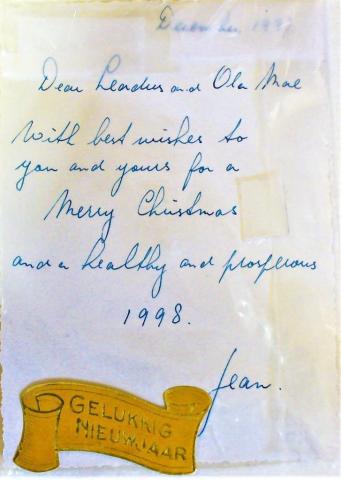 December 1997
Dear Leadus and Ola Mae
With best wishes to
you and yours for a
Merry Christmas
and a healthy and prosperous
1998.
Jean.
GELUKKIG
NIEUWJAAR